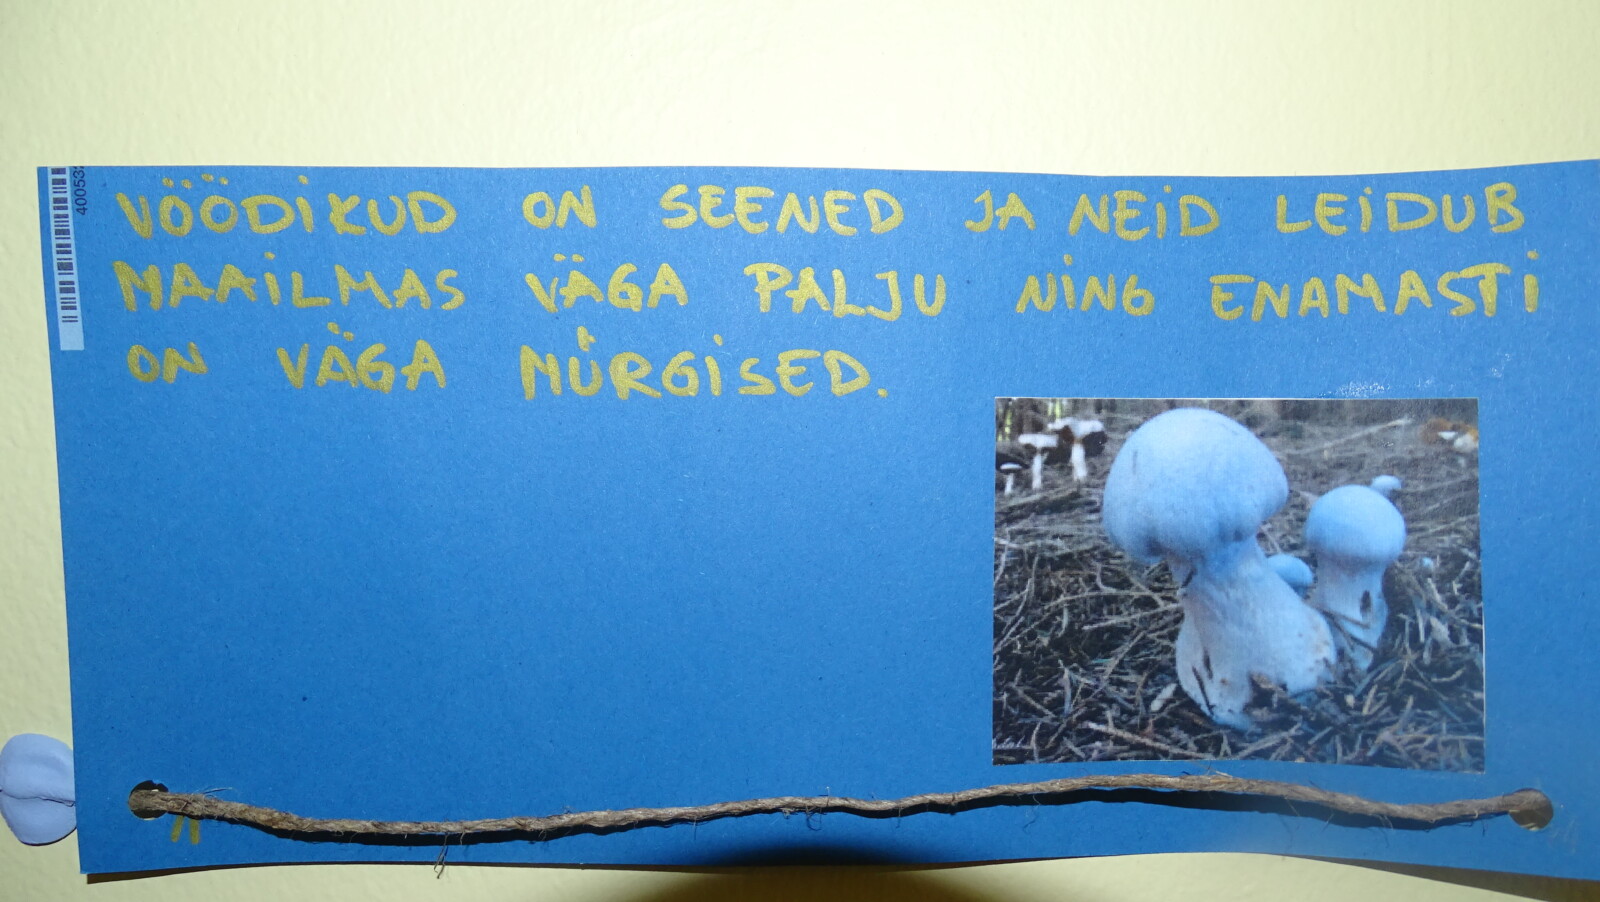 40053
VÖÖDIKUD ON SEENED JA NEID LEIDUB
MAAILMAS VÄGA PALJU NING ENAMASTI
ON VÄGA MÜRGISED.